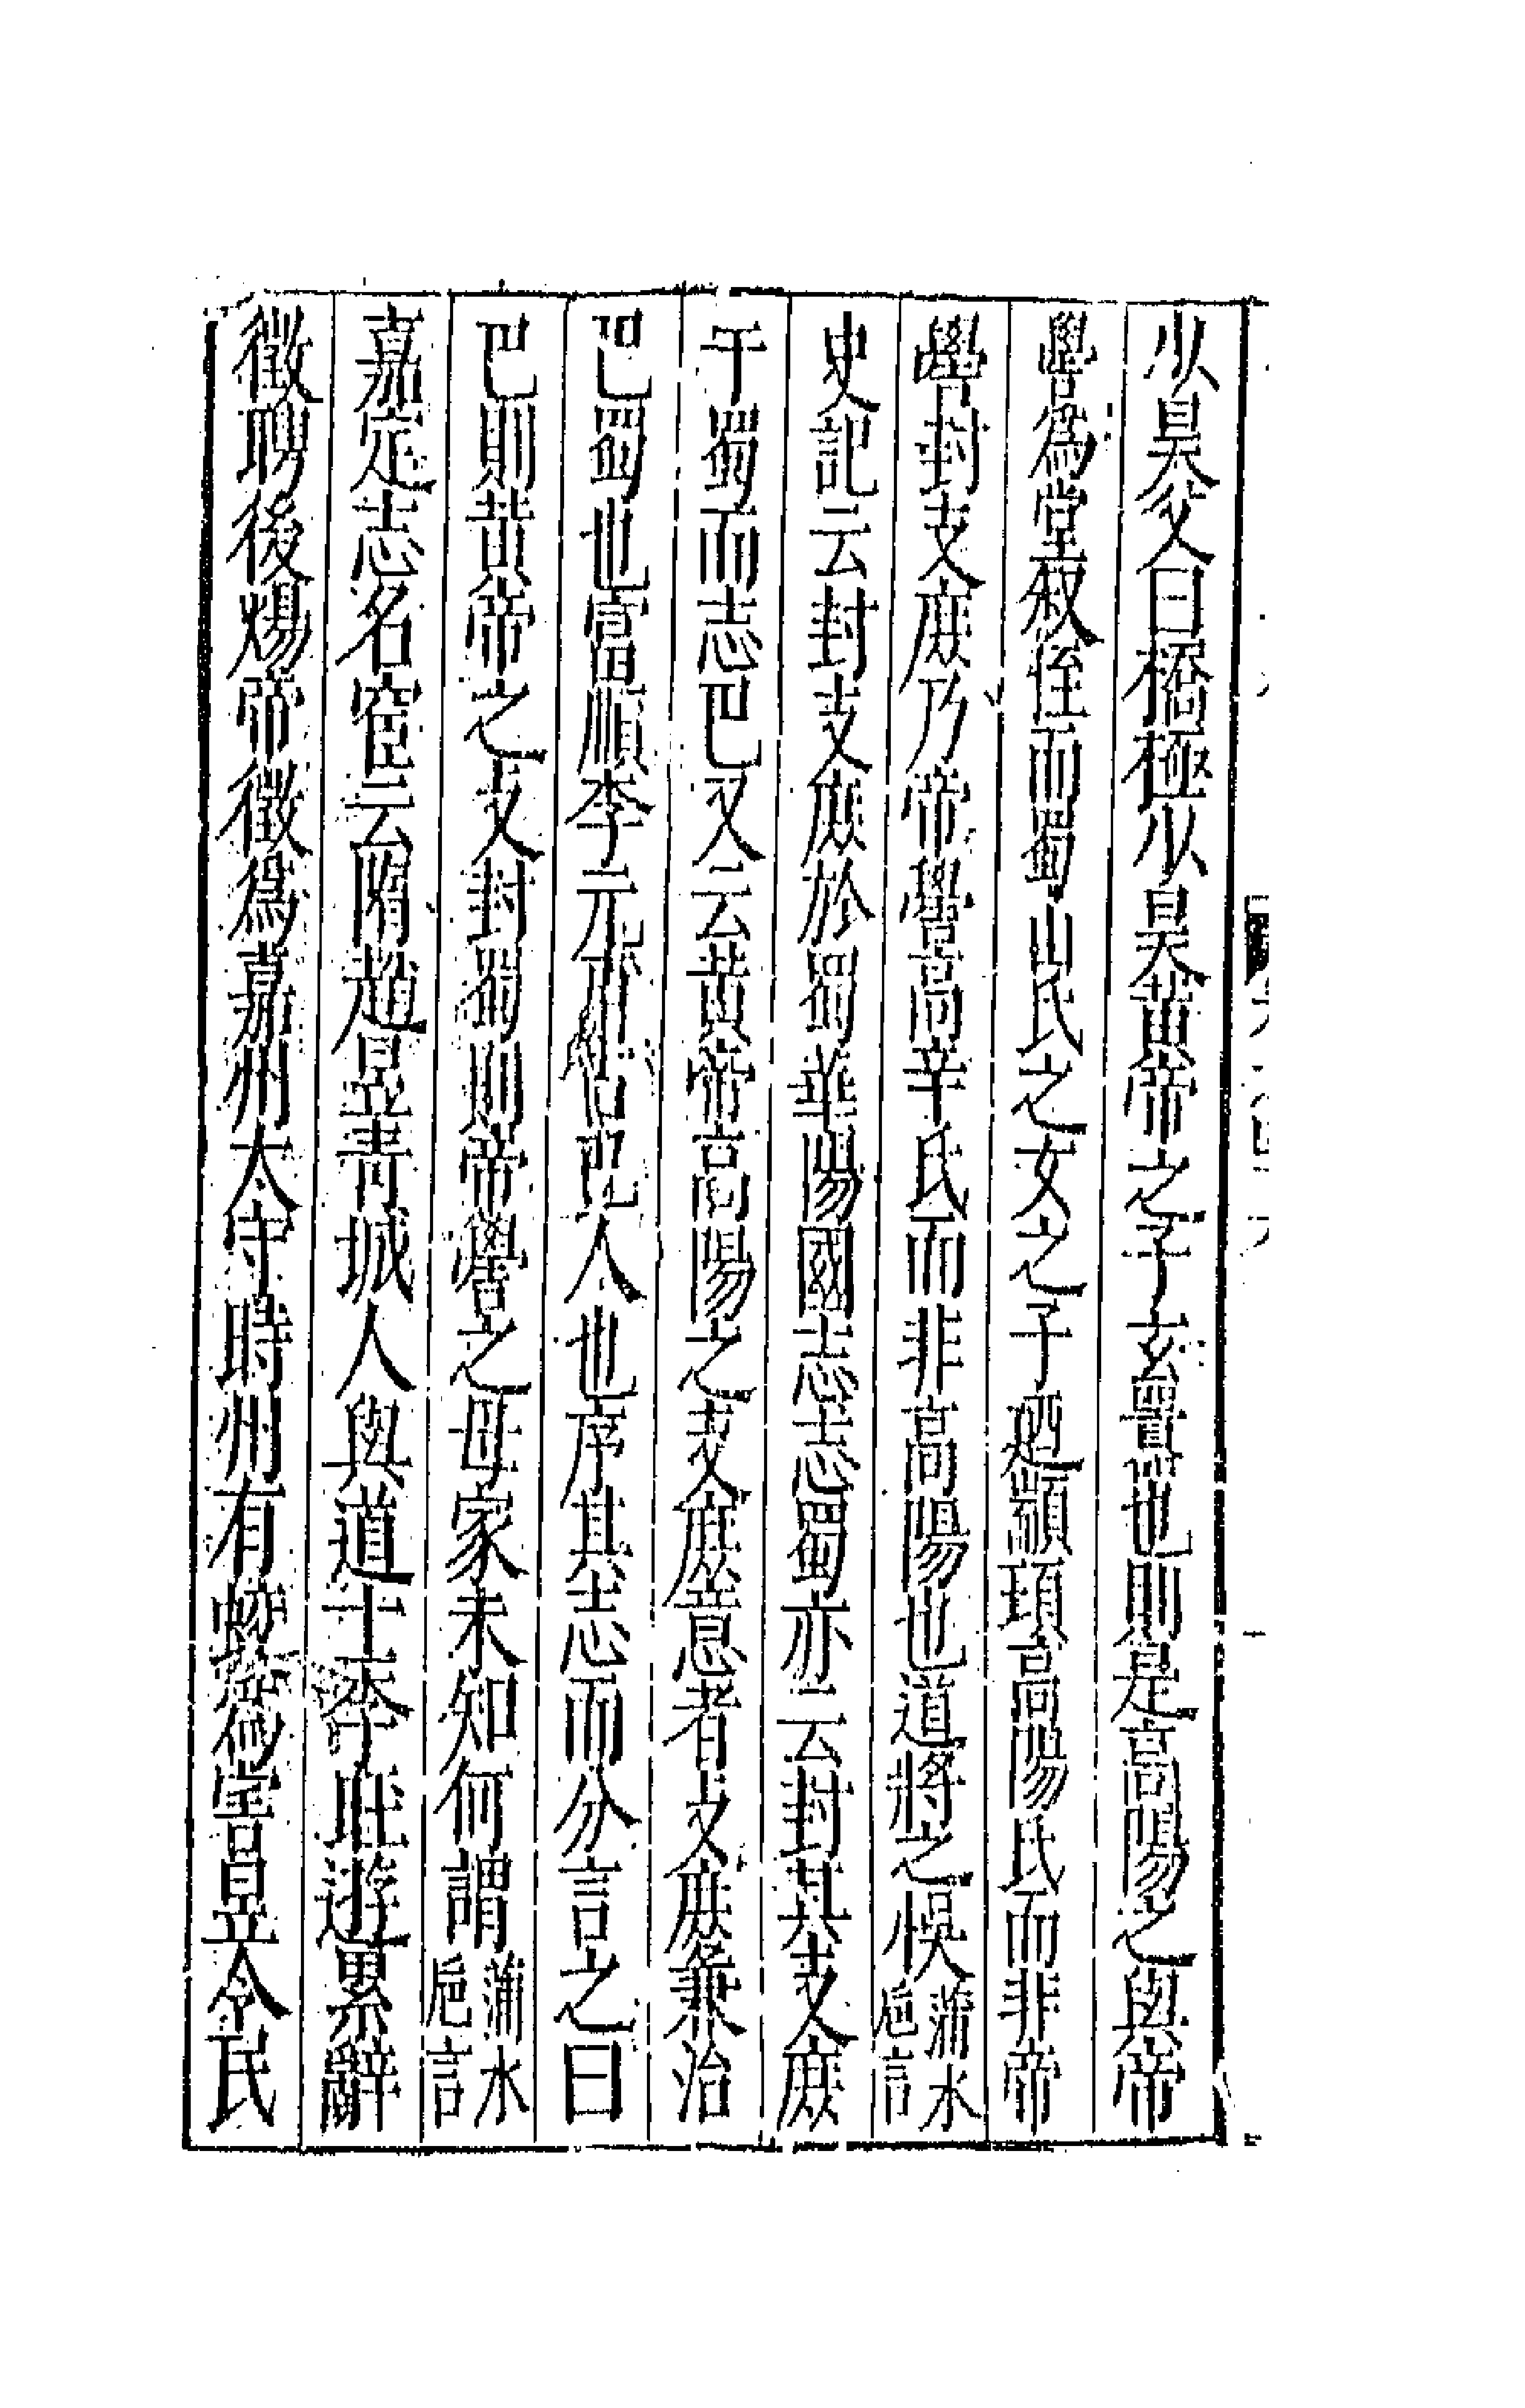 少昊父曰橋極少昊黃帝之子玄囂也則是高陽之與帝
嚳爲堂叔侄而蜀山氏之女之子廼顓頊高陽氏而非帝
嚳封支庶乃帝嚳高辛氏而非高陽也道將之悞蒲水巵言
史記云封支庶於蜀華陽國志志蜀亦云封其支庶
于蜀而志巴又云黃帝高陽之支庶意者支庶兼治
巴蜀也富順李元陽巴人也序其志而分言之曰
巴則黃帝之支封蜀則帝嚳之母家未知何謂蒲水巵言
嘉定志名宦云隋趙昱青城人與道士李珏遊累辭
徵聘後煬帝徵爲嘉州太守時州有蛟爲害昱令民